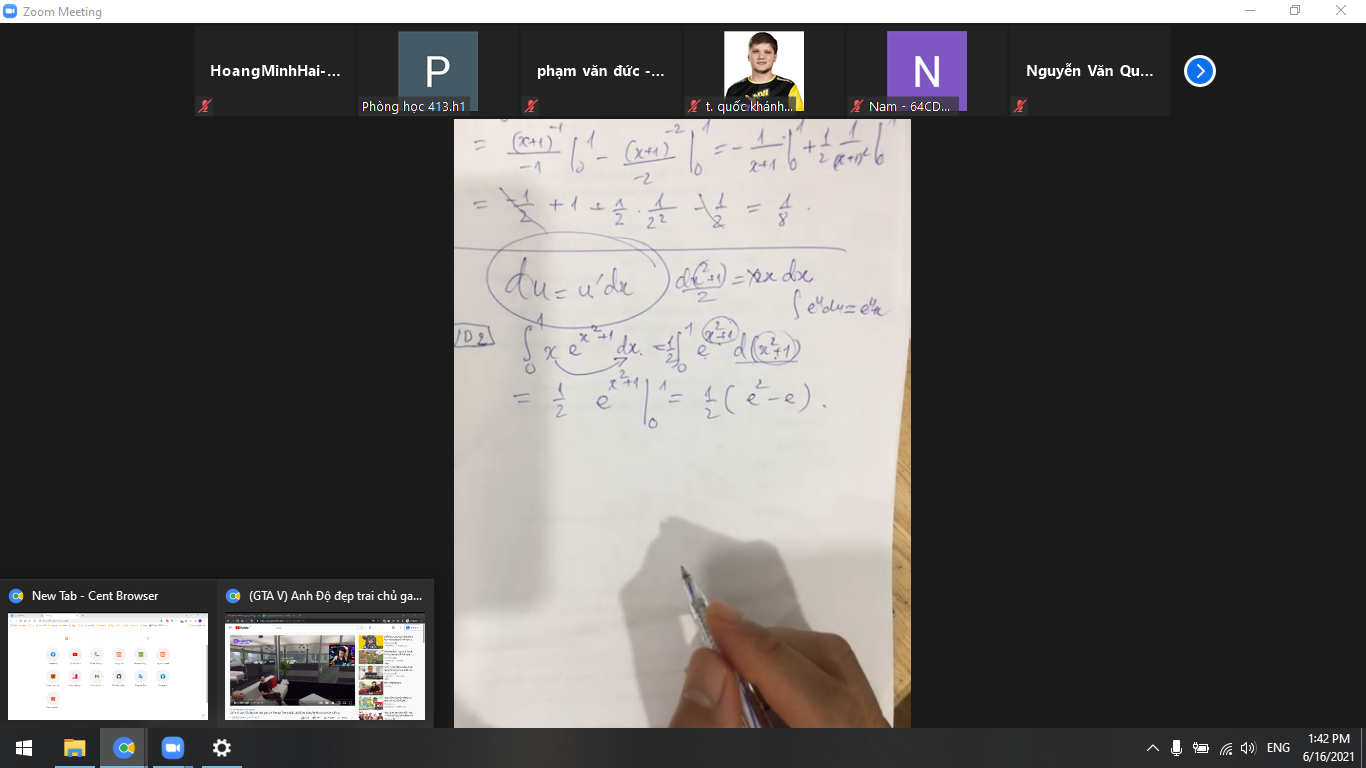 Zoom Meeting
HoangMinhHai-...
P
Phòng học 413.h1
phạm văn đức -...
t. quốc khánh...
N
Nam - 64CD...
Nguyễn Văn Qu...
= (x+1)^-1 / -1 |_0^1 - (x+1)^-2 / -2 |_0^1 = - 1/(x+1) |_0^1 + 1/2 1/(x+1)^2 |_0^1
= -1/2 + 1 + 1/2 . 1/2^2 - 1/2 = 1/8 .
du = u'dx d(x^2+1)/2 = x dx
∫ e^u du = e^u
∫_0^1 x e^{x^2+1} dx = 1/2 ∫_0^1 e^{x^2+1} d(x^2+1)
= 1/2 e^{x^2+1} |_0^1 = 1/2 ( e^2 - e ) .
New Tab - Cent Browser
(GTA V) Anh Độ đẹp trai chủ ga...
ENG
1:42 PM
6/16/2021